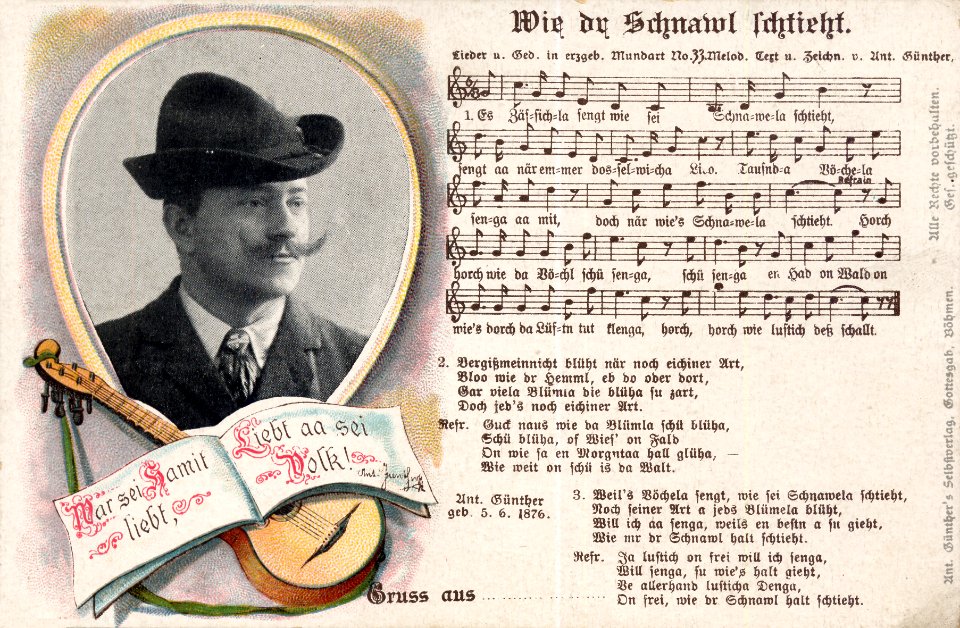 Wie dr Schnawl schtieht.
Lieder u. Ged. in erzgeb. Mundart No. 33. Melod. Text u. Zeichn. v. Ant. Günther,
1. Es Zäs=sich=la sengt wie sei Schna=we=la schtieht,
sengt aa när em=mer dos=sel=wicha Li..o. Tausnd=a Vö=che=la
Refrain
sen=ga aa mit, doch när wie's Schna=we=la schtieht. Horch
horch wie da Vöchl schü sen=ga, schü sen=ga en Had on Wald on
wie's dorch da Lüf=tn tut klenga, horch, horch wie lustich deß schallt.
2. Vergißmeinnicht blüht när noch eichiner Art,
Bloo wie dr Hemml, eb do oder dort,
Gar viela Blümla die blüha su zart,
Doch jed's noch eichiner Art.
Refr. Guck naus wie da Blümla schü blüha,
Schü blüha, of Wies' on Fald
On wie sa en Morgntaa hall glüha, —
Wie weit on schü is da Walt.
Ant. Günther
geb. 5. 6. 1876.
3. Weil's Vöchela sengt, wie sei Schnawela schtieht,
Noch seiner Art a jeds Blümela blüht,
Will ich aa senga, weils en bestn a su gieht,
Wie mr dr Schnawl halt schtieht.
Refr. Ja lustich on frei will ich senga,
Will senga, su wie's halt gieht,
Ve allerhand lusticha Denga,
On frei, wie dr Schnawl halt schtieht.
War sei Hamit
liebt,
Liebt aa sei
Volk!
Ant. Günther
Gruss aus
Alle Rechte vorbehalten.
Ges. geschützt.
Ant. Günther's Selbstverlag, Gottesgab, Böhmen.